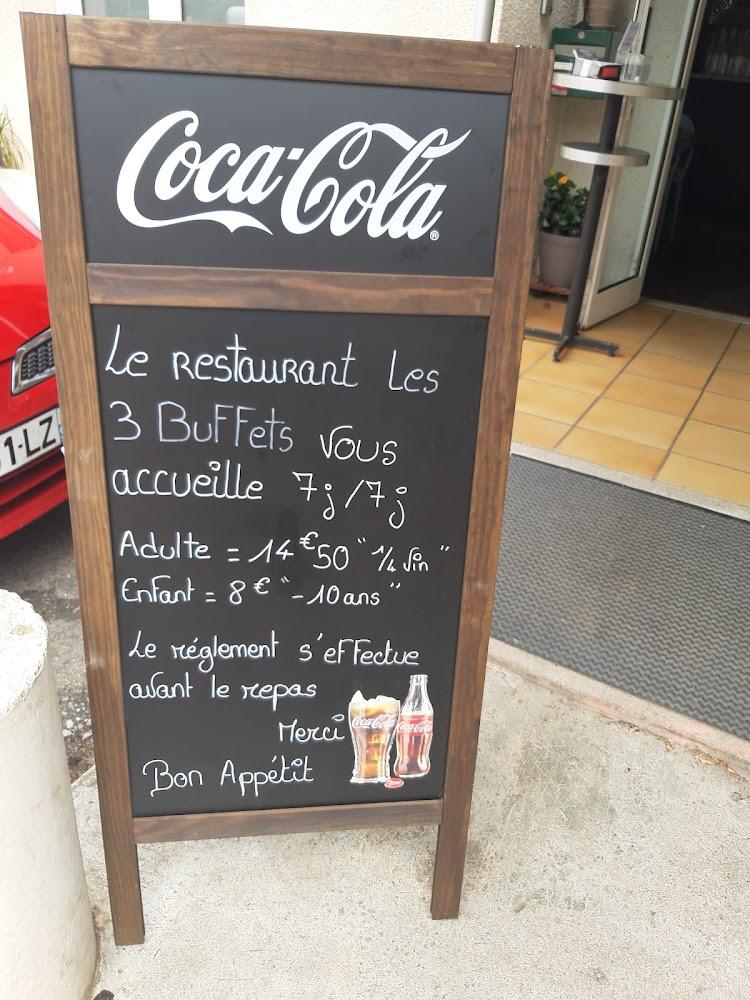 Coca-Cola®
Le restaurant Les
3 Buffets vous
accueille 7j/7j
Adulte = 14€50 "1/4 vin"
Enfant = 8€ "-10ans"
Le réglement s'effectue
avant le repas
Merci
Bon Appétit
Coca-Cola
Coca-Cola
1-LZ